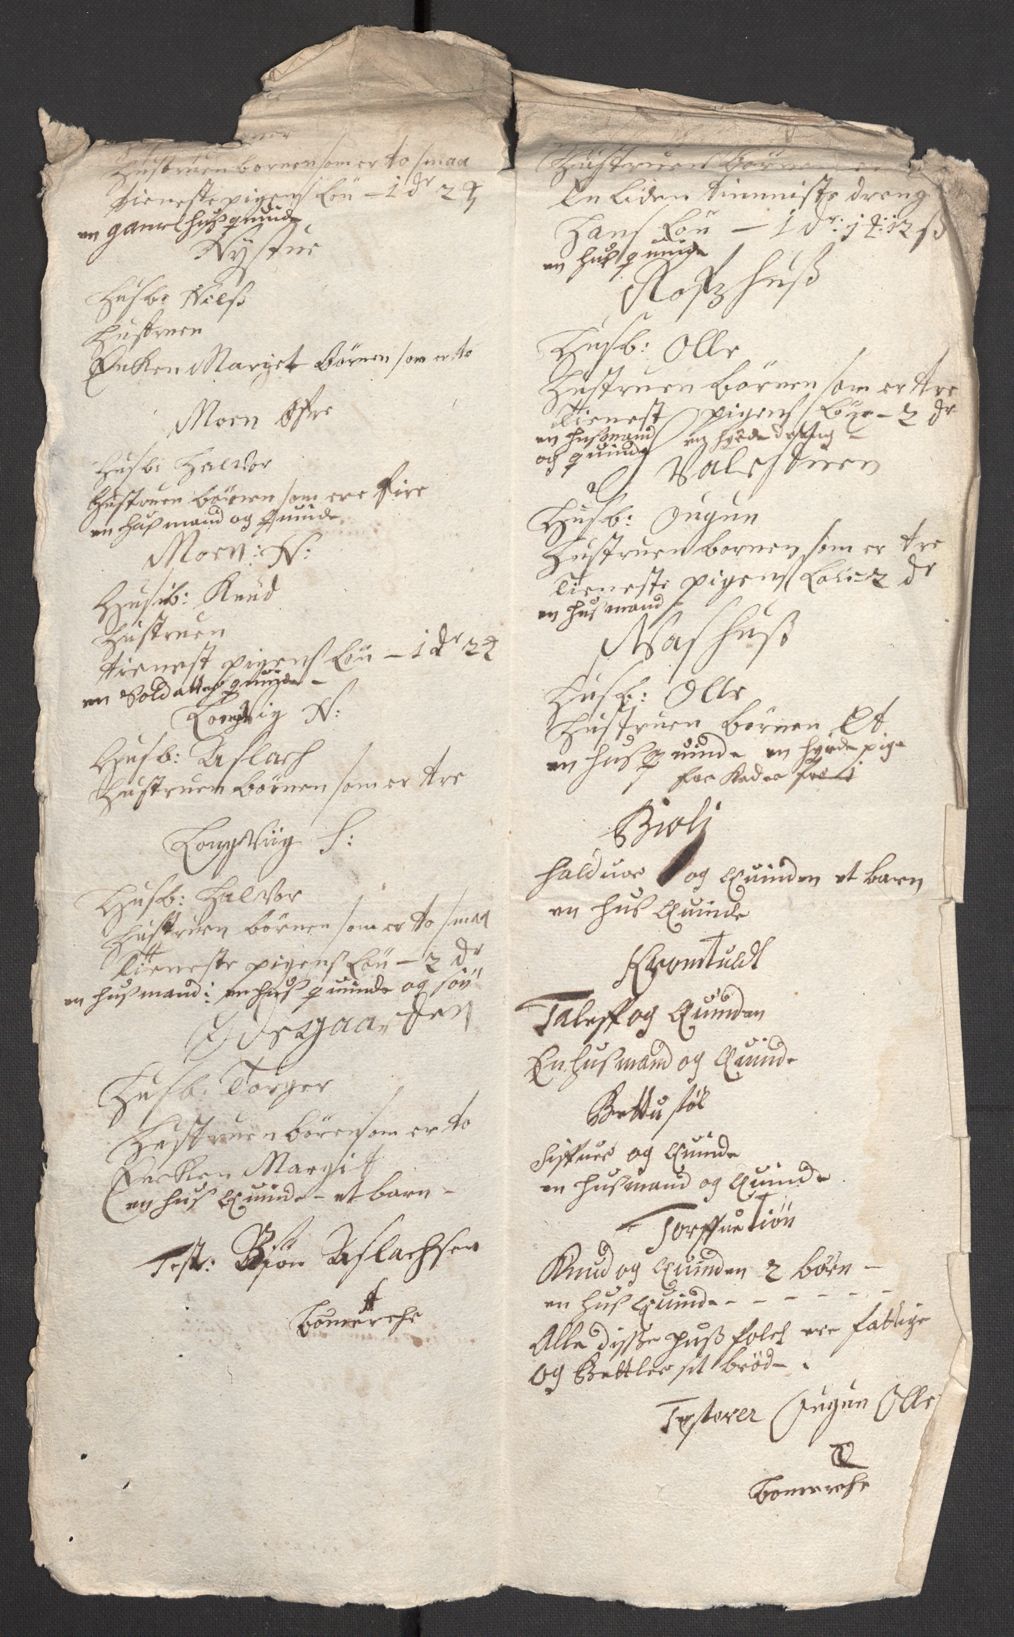 Hustruen børnen som er to smaa
tieneste pigens Løn – 1 dr 2 ₰
en gamel hus quinde
Nystue
Husb: Nelß
Hustruen
Encken Margit børnen som er to
Moen Øfre
Husb: Halvor
Hustruen børnen som ere fire
en hus mand og quinde
Moen: N:
Husb: Knud
Hustruen
tienest pigens Løn – 1 dr 2 ₰
en Soldatter quinde –
Longvig N:
Husb: Aslach
Hustruen børnen som er tre
Longwiig S:
Husb: Halvor
Hustruen børnen som er to smaa
tieneste pigens Løn – 2 dr
en husmand: en hus quinde og søn
Husb: Torger
Hustruen børen som er to
Encken Margit
en hus Quinde – et barn –
Test: Biøn Aslachsen
bomerche
Hustruen børnen
En liden tienniste dreng
Hans Løn – 1 dr: 1 ₰: 12 ß
en hus quinde
Husb: Olle
Hustruen børnen som er tre
Tienest pigens Løn – 2 dr
en husmand en hyrde dreng –
og quinde
Valestuen
Husb: Jugun
Hustruen bornen som er tre
Tieneste pigens Løn – 2 dr
en husmand
Aashuß
Husb: Olle
Hustruen børnen Et
en hus quinde en hyrde pige
Bioli
Halduor og Quinden et barn
en hus Quinde
Kromtuedt
Taleff og Quinden
En husmand og Quinde
Bettustøl
Siffuer og Quinde
en husmand og Quinde
Torffuetiøn
Knud og Quinden 2 børn –
en hus Quinde – – – – – –
Alle disse huß folch ere fattige
og Bettler sit brød – .
Testerer Jugun Olle
bomerche